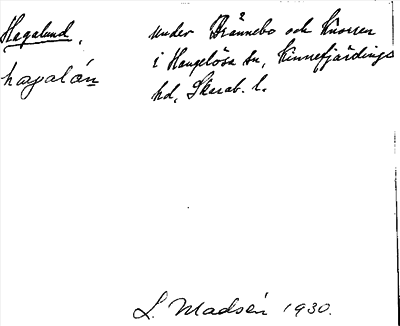 Hagalund,
hagalún
under Brännebo och Knorren
i Hangelösa sn, Kinnefjärdings
hd, Skarab. l.
L. Madsén 1930.